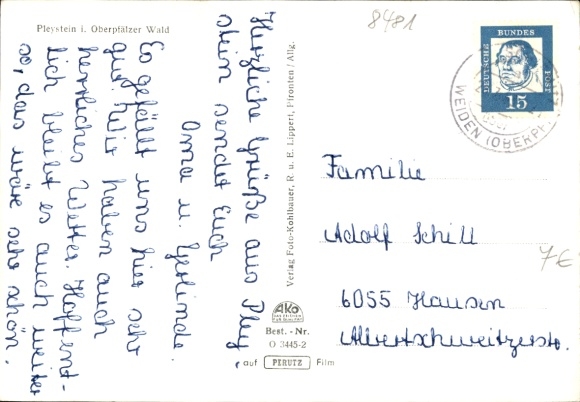 Pleystein i. Oberpfälzer Wald
8481
DEUTSCHE BUNDESPOST
15
WEIDEN (OBERPF
Herzliche Grüße aus Pley-
stein sendet Euch
Oma u. Gerlinde.
Es gefällt uns hier sehr
gut. Wir haben auch
herrliches Wetter. Hoffent-
lich bleibt es auch weiter
so, das wäre sehr schön.
Verlag Foto-Kohlbauer, R. u. E. Lippert, Pfronten / Allg.
Familie
Adolf Schill
6055 Hausen
Albertschweitzerstr.
7€
AKO
Best. - Nr.
O 3445-2
auf PERUTZ Film